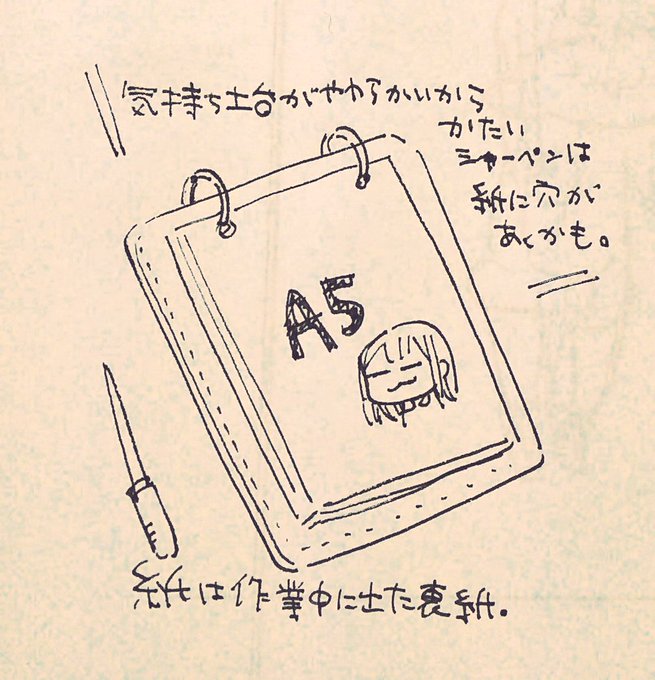 気持ち土台がやわらかいから
かたい
シャーペンは
紙に穴が
あくかも。
A5
紙は作業中に出た裏紙。